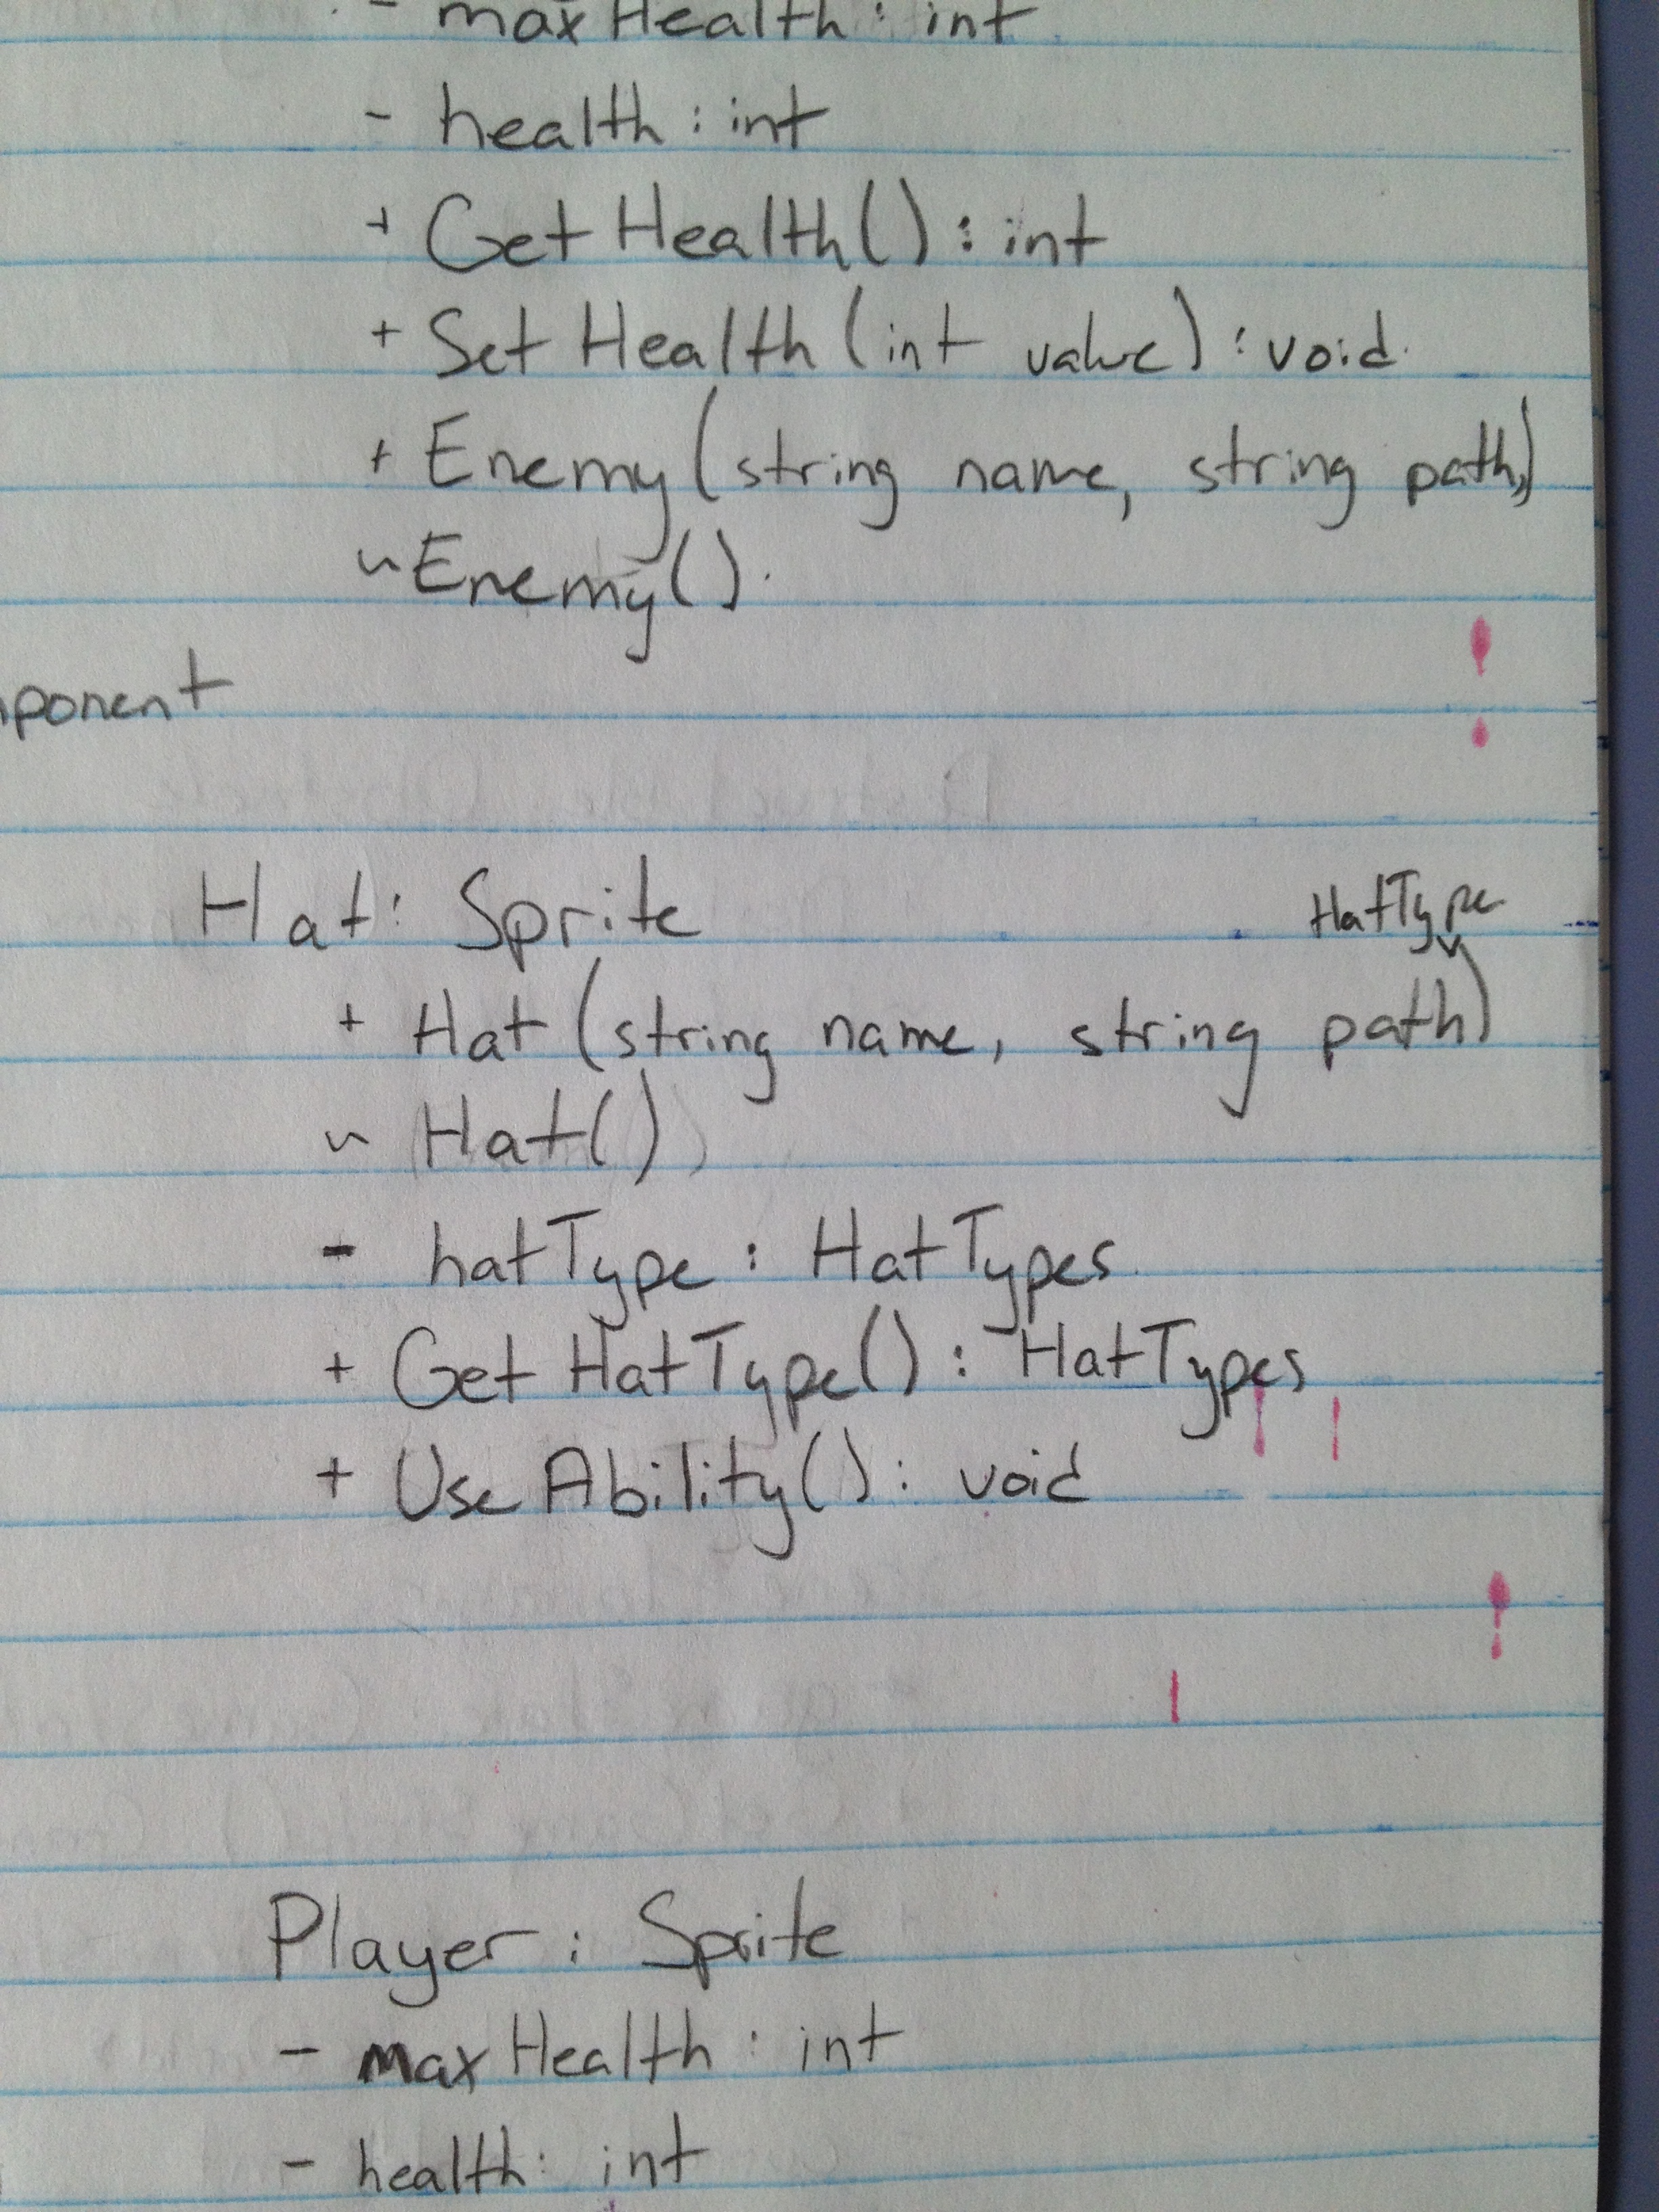 - maxHealth: int
- health: int
+ GetHealth(): int
+ SetHealth(int value): void
+ Enemy(string name, string path,)
~Enemy()
ponent
Hat: Sprite
HatType
+ Hat(string name, string path)
~ Hat()
- hatType: HatTypes
+ GetHatType(): HatTypes
+ UseAbility(): void
Player: Sprite
- maxHealth: int
- health: int